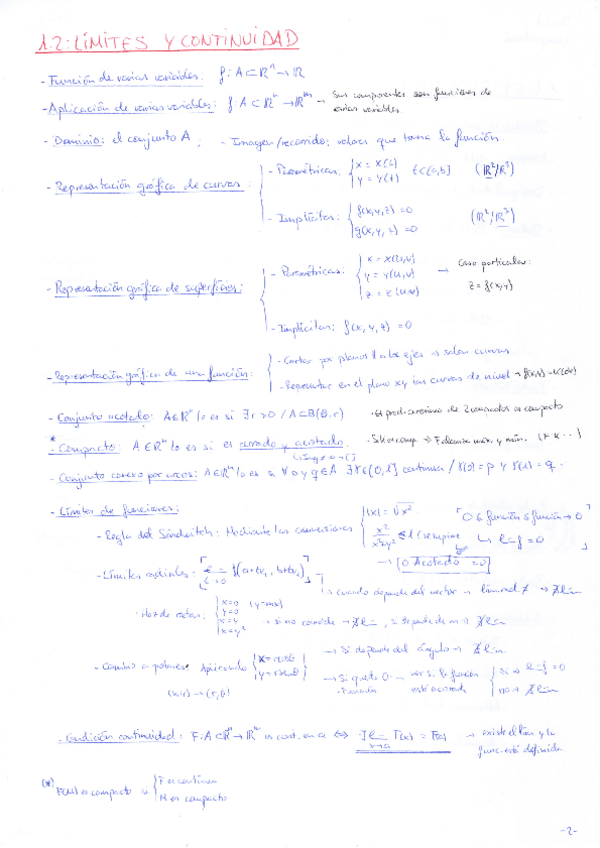 1.2: LÍMITES Y CONTINUIDAD
- Función de varias variables: f: A⊂ℝⁿ→ℝ
- Aplicación de varias variables: f: A⊂ℝⁿ→ℝᵐ → Sus componentes son funciones de varias variables
- Dominio: el conjunto A; - Imagen/recorrido: valores que toma la función
- Representación gráfica de curvas:
- Paramétricas: { x = x(t) y = y(t) t∈[a,b] (ℝ²/ℝ³)
- Implícitas: { f(x,y,z) = 0 g(x,y,z) = 0 (ℝ²/ℝ³)
- Representación gráfica de superficies:
- Paramétricas: { x = x(u,v) y = y(u,v) z = z(u,v) → Caso particular: z = f(x,y)
- Implícitas: f(x,y,z) = 0
- Representación gráfica de una función:
- Cortar por planos // a los ejes → salen curvas
- Representar en el plano xy las curvas de nivel →
- Conjunto acotado: A∈ℝⁿ lo es si ∃r>0 / A⊂B(0,r)
- El prod. cartesiano de 2 compactos es compacto
* - Compacto: A∈ℝⁿ lo es si es cerrado y acotado.
- Conjunto conexo por arcos: A∈ℝⁿ lo es si ∀ p y q∈A ∃ γ∈[0,1] continua / γ(0)=p y γ(1)=q.
- Límites de funciones:
- Regla del Sándwich: Mediante las
|x| = √x²
x²/x²+y² ≤ 1
0 ≤ función ≤ función → 0
→ [0·Acotado = 0]
- Límites radiales: f(a+tv₁, b+tv₂)
→ cuando depende del vector →
· Haz de rectas: { x=0 (y=mx) y=0 x=y x=y² → si no coincide → ∄ lím, si depende de m → ∄ lím
- Cambio a polares: Aplicando { x = r cosθ y = r senθ }
(x,y) → (r,θ)
→ Si depende del ángulo → ∄ lím
→ Si queda 0· función → ver si la función está acotada { Si → lím f = 0 no → ∄ lím
- Condición continuidad: F: A⊂ℝⁿ→ℝᵐ es cont. en a ⇔ ∃ lím F(x) = F(a) → existe el lím. y la func. está definida
x→a
(*) F(M) es compacto si { F es continua M es compacto
-2-